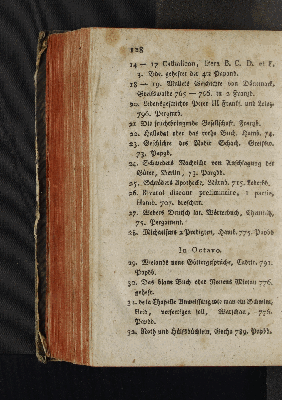 128
14 — 17 Catholicon, litera B. C. D. et E.
3. Bde. geheftet der 4te Papbd.
18 — 19. Mallets Geschichte von Dänemark,
Greifswalde 765 — 766. in 2 Franzb.
20. Lebensgeschichte Peter III Frankf. und Leipz.
796. Pergamb.
21. Die fruchtbringende Gesellschaft. Franzb.
22. Halladat oder das rothe Buch. Hamb. 74.
23. Geschichte des Nadir Schach, Greifsw.
73. Papbd.
24. Schwedens Nachricht von Abschlagung der
Güter, Berlin, 73. Papbd.
25. Schröders Apothecke, Nürnb. 715. Lederbd.
26. Recueil discant preliminaire, 1 partie,
Hamb. 707. broschirt.
27. Webers Deutsch lat. Wörterbuch, Chemnitz,
75. Pergament.
28. Michaelsens 2 Predigten, Hamb. 775. Papbd
In Octavo.
29. Wielands neue Göttergespräche, Carlsr. 791.
Papbd.
30. Das blaue Buch oder Mietau 776.
geheft.
31. de la Chapelle Anweisung wie man ein Schwim,
kleid, verfertigen soll, Warschau, 776.
Papbd.
32. Noth und Hülfsbüchlein, Gotha 789. Papbd.